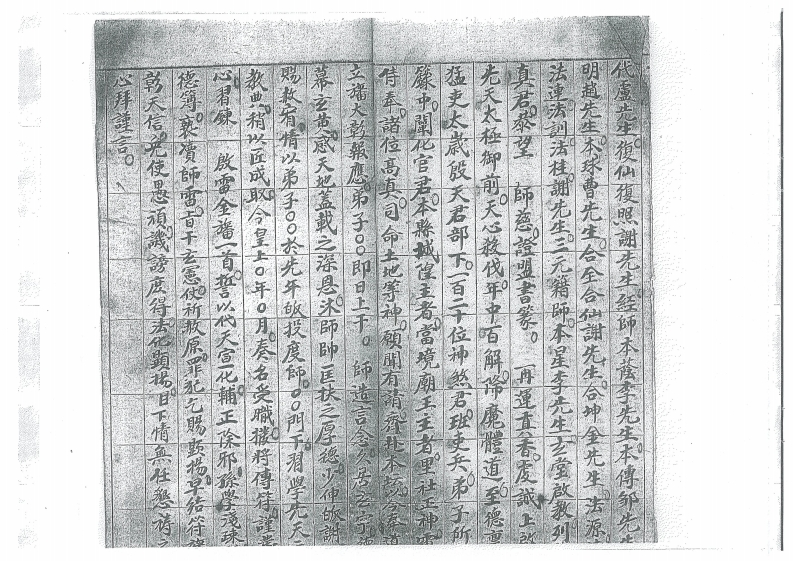 代盧先生復仙復照謝先生經師本蔭李先生本傳鄒先生
明趙先生本珠曹先生合全合仙謝先生合坤金先生法源
法連法訓法桂謝先生三元籍師本星李先生玄堂啟教列
真君恭望 師慈證盟書篆 再運真香虔誠上啟
先天太極御前天心殺伐年中百解降魔體道至德
猛吏太歲殷天君部下一百二十位神煞君班吏兵弟子所
籙中闡化官君本縣城隍主者當境廟王主者里社正神
侍奉諸位高真司命土地等神願聞有請齊赴本
立諸大彰報應弟子〇〇即日上干 師造言念
幕玄黃感天地蓋載之深恩沐師帥匡扶之厚德少伸
賜教宥情以弟子〇〇於先年皈投度師〇〇門下習學先天
教典稍以匠成取今皇上〇年〇月奏名受職撥將傳符謹
心習鍊 啟雷全旛一首誓以代天宣化輔正除邪孫學淺
德薄褻瀆師雷冒干玄憲伏祈赦原罪犯乞賜顯揚早
彰天信免使愚頑譏謗庶得法化顯揚日下情無任懇禱之
心拜謹言